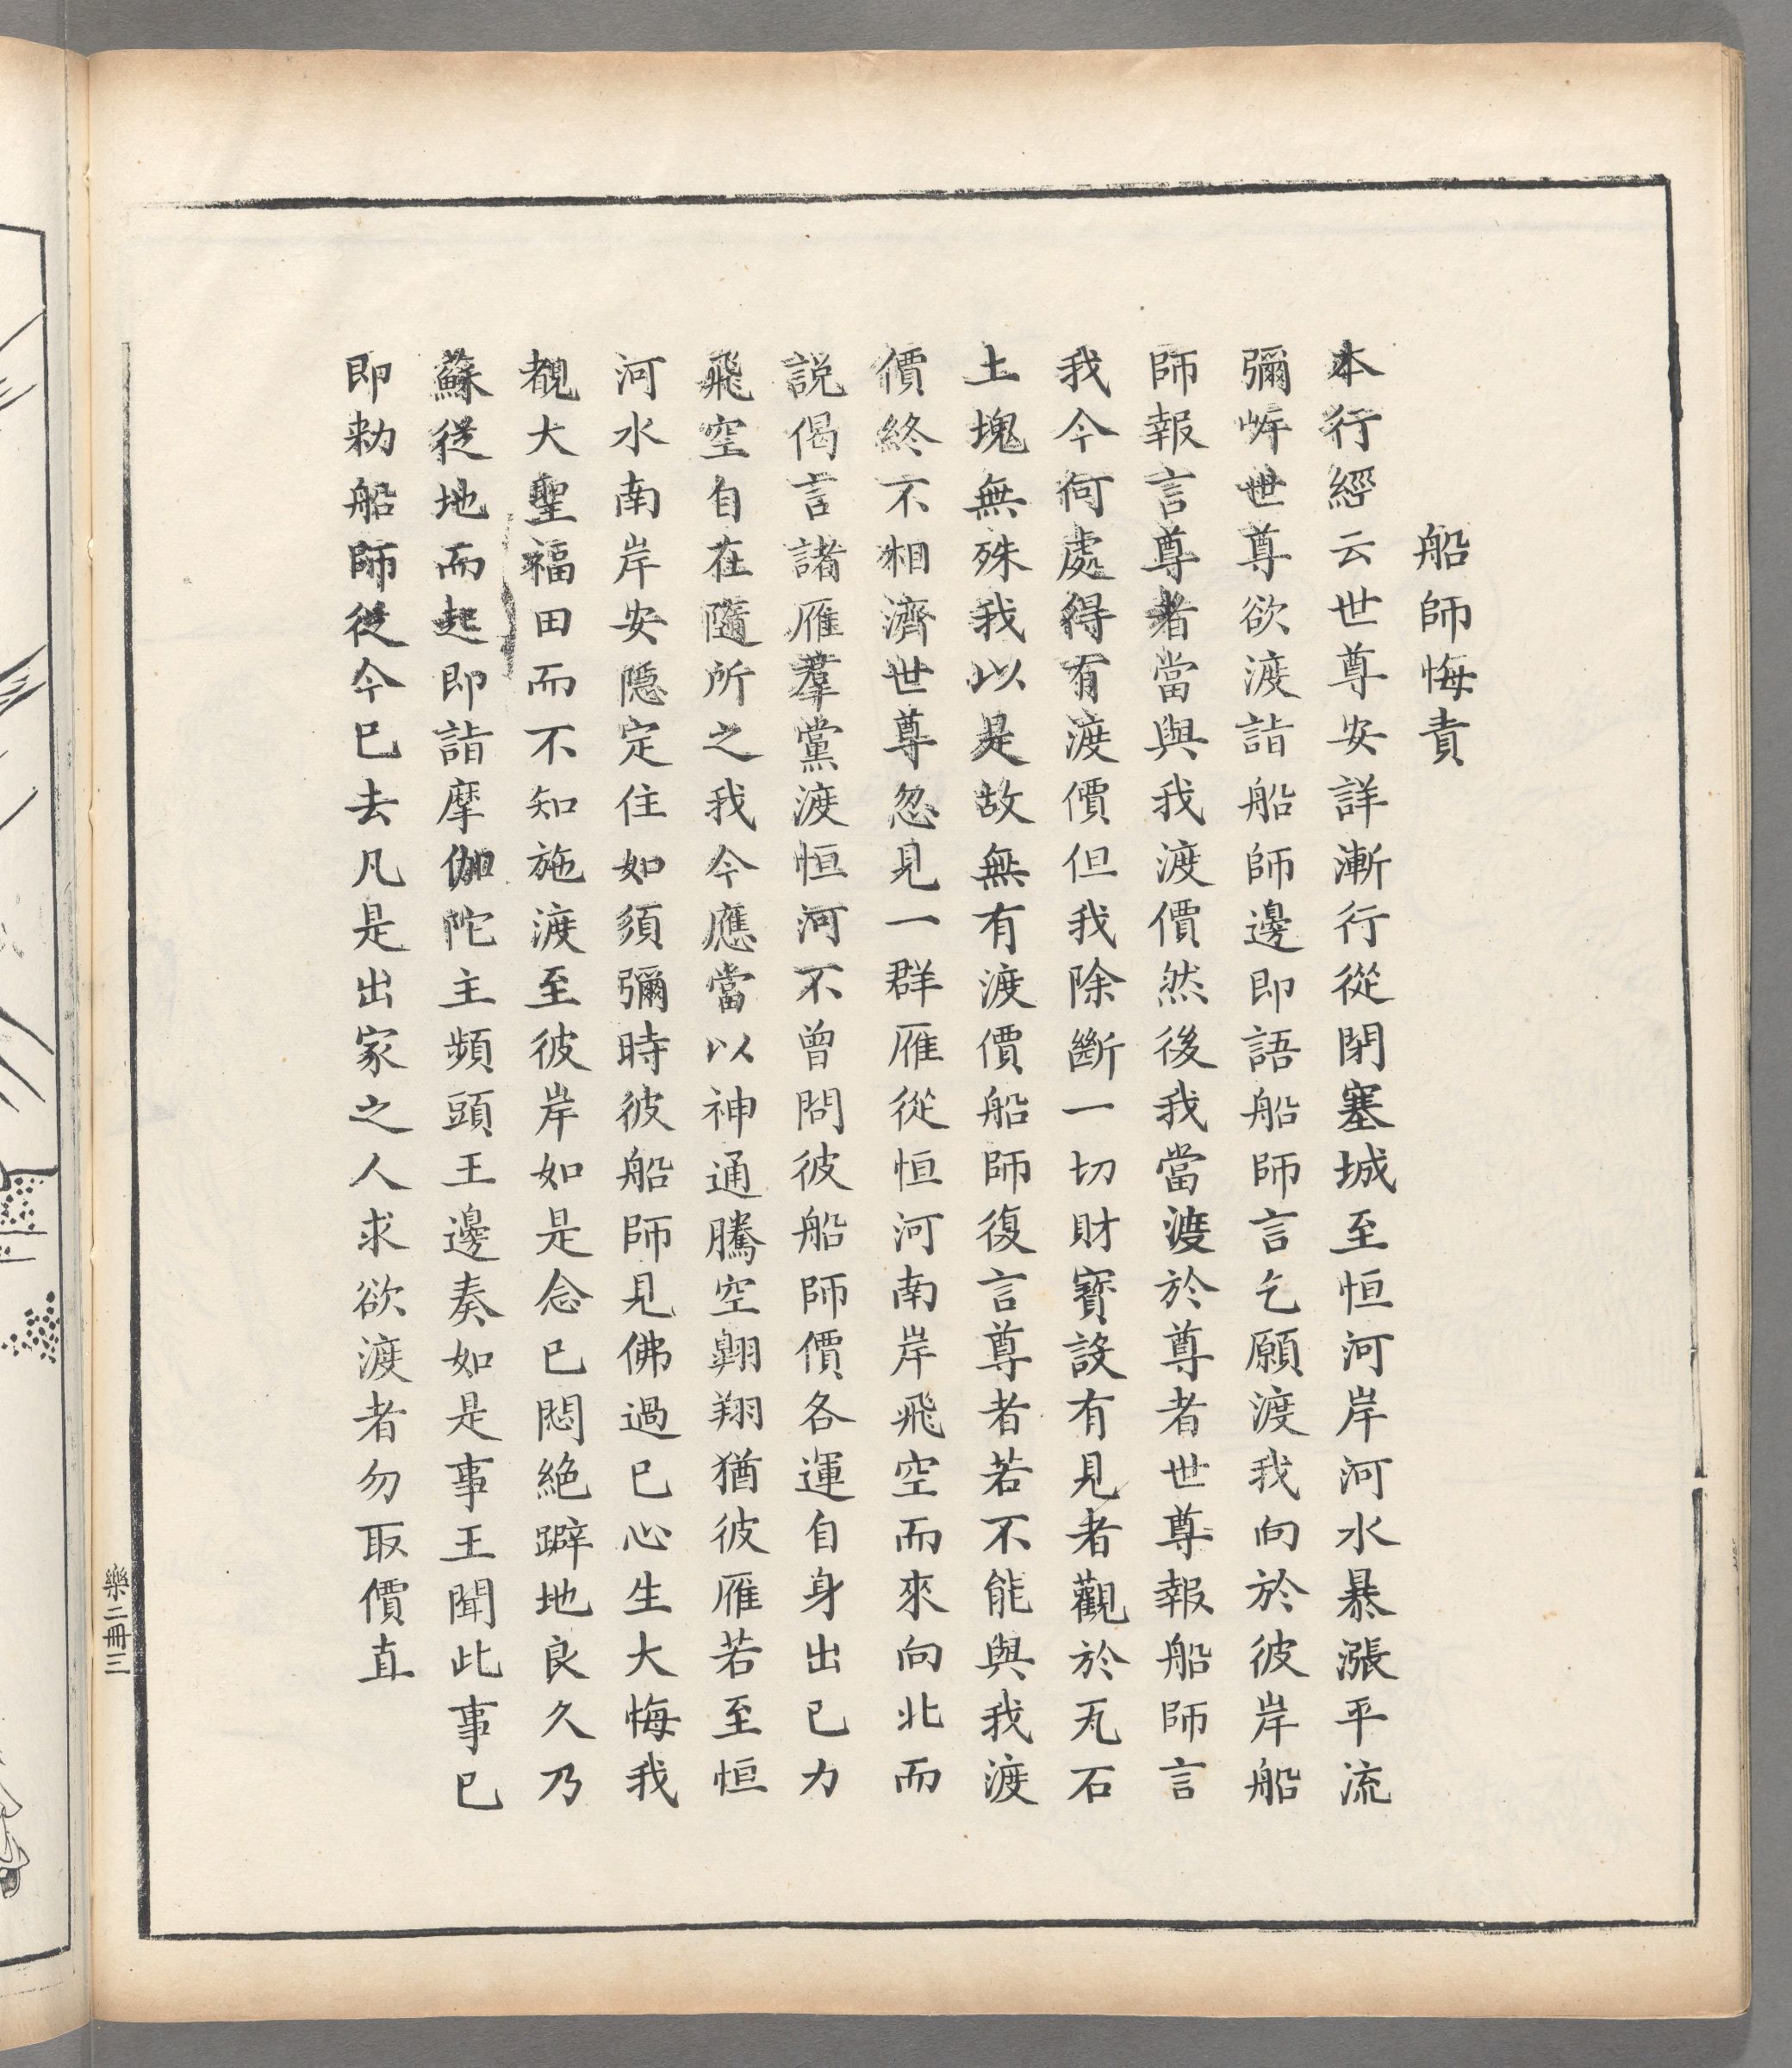 船師悔責
本行經云世尊安詳漸行從閉塞城至恒河岸河水暴漲平流
彌岸世尊欲渡詣船師邊即語船師言乞願渡我向於彼岸船
師報言尊者當與我渡價然後我當渡於尊者世尊報船師言
我今何處得有渡價但我除斷一切財寶設有見者觀於瓦石
土塊無殊我以是故無有渡價船師復言尊者若不能與我渡
價終不相濟世尊忽見一群雁從恒河南岸飛空而來向北而
説偈言諸雁羣黨渡恒河不曾問彼船師價各運自身出已力
飛空自在隨所之我今應當以神通騰空翺翔猶彼雁若至恒
河水南岸安隱定住如須彌時彼船師見佛過已心生大悔我
覩大聖福田而不知施渡至彼岸如是念已悶絶躃地良久乃
蘇從地而起即詣摩伽陀主頻頭王邊奏如是事王聞此事已
即勑船師從今已去凡是出家之人求欲渡者勿取價直
樂二冊三